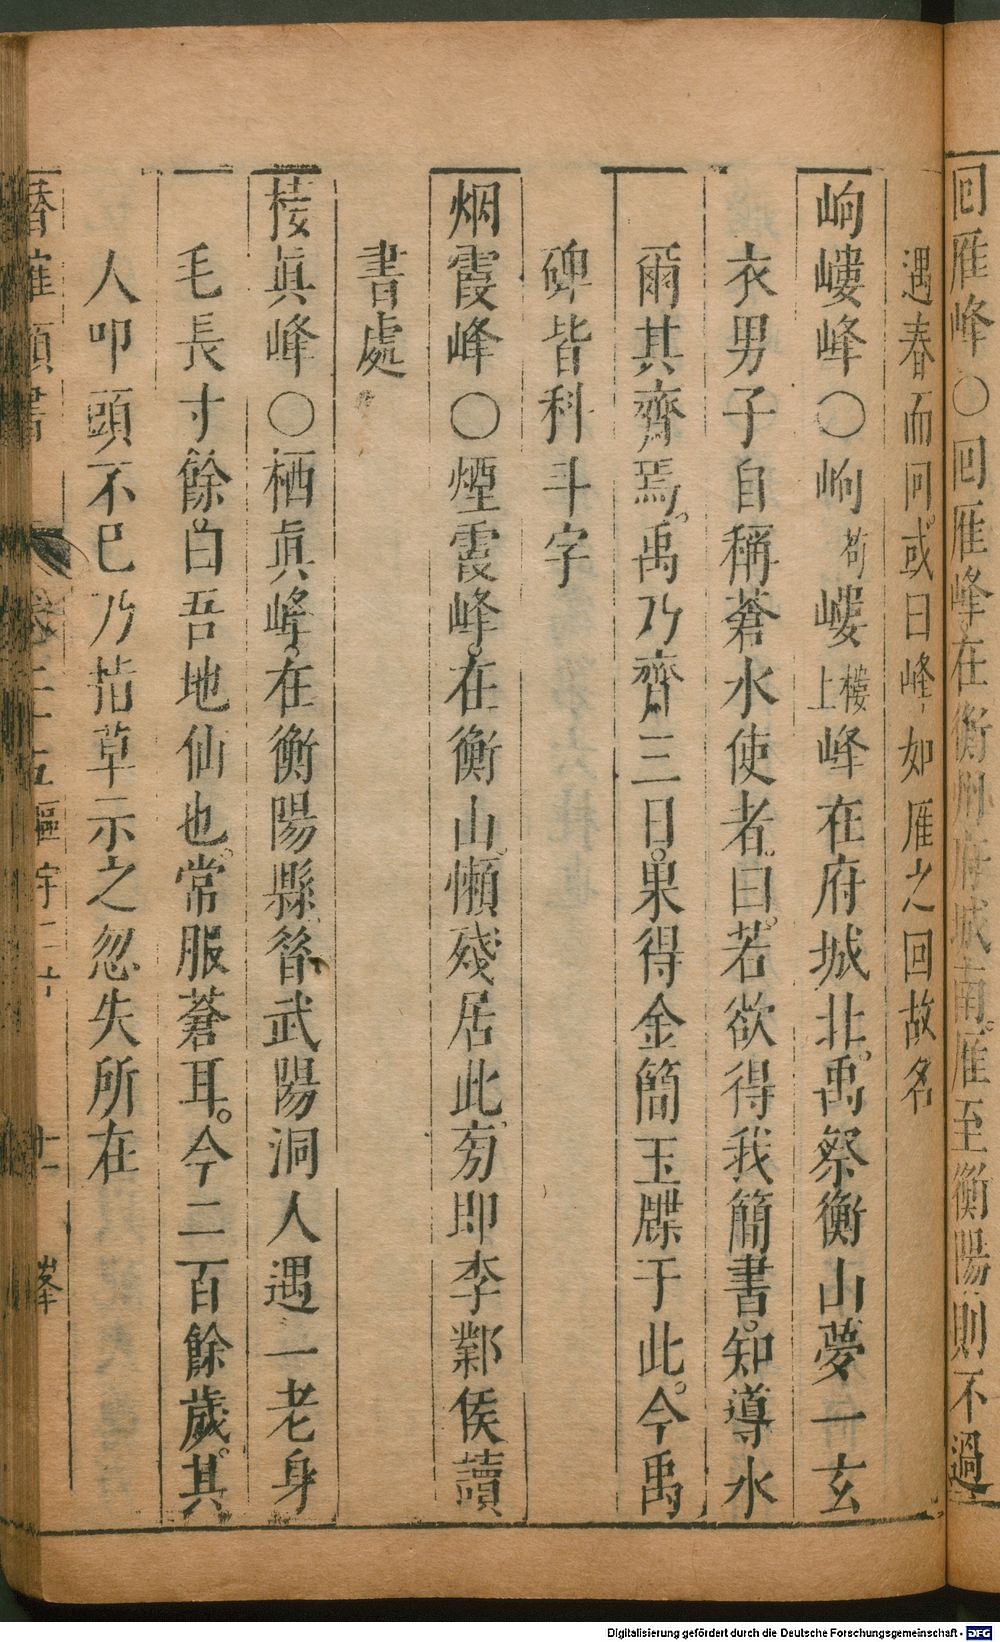 回雁峰〇回雁峰在衡州府城南。雁至衡陽則不過
遇春而回。或曰峰如雁之回故名
岣嶁峰〇岣苟嶁樓上峰在府城北。禹祭衡山夢一玄
衣男子自稱蒼水使者。曰。若欲得我簡書。知導水
爾其齊焉。禹乃齊三日。果得金簡玉牒于此。今禹
碑皆科斗字
烟霞峰〇煙霞峰。在衡山。懶殘居此。旁即李鄴侯讀
書處
棲眞峰〇栖眞峰。在衡陽縣。昝武陽洞人遇一老身
毛長寸餘。白吾地仙也。常服蒼耳。今二百餘歲。其
人叩頭不巳乃指草示之忽失所在
類書
五
十一
Digitalisierung gefördert durch die Deutsche Forschungsgemeinschaft - DFG